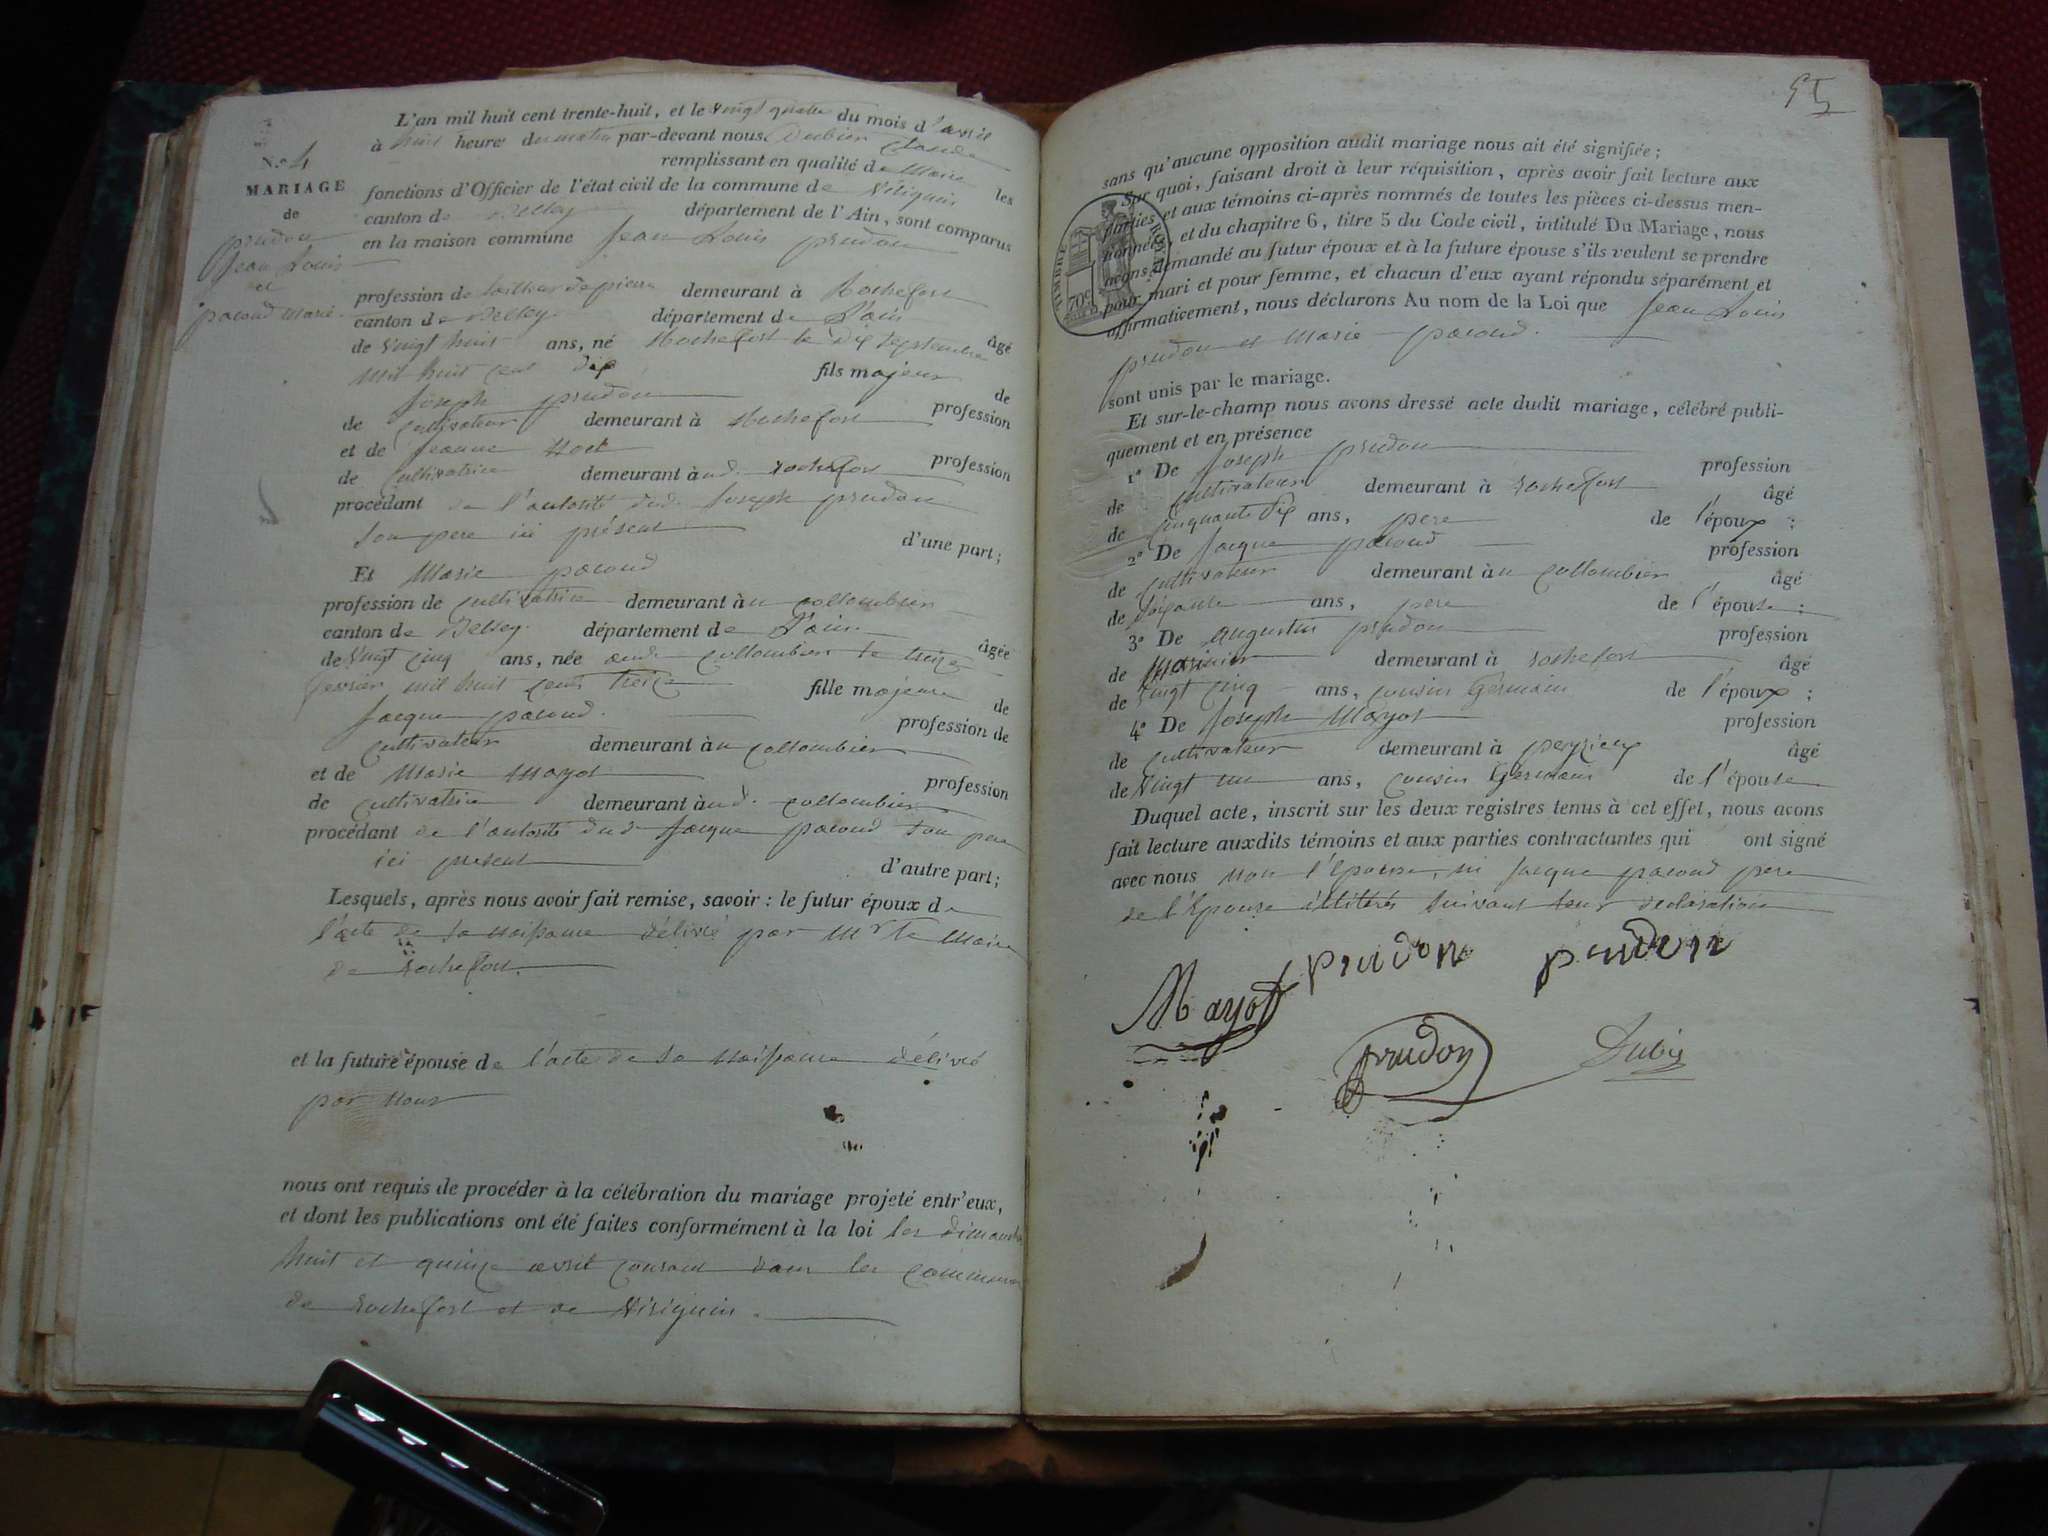 L'an mil huit cent trente-huit, et le vingt quatre du mois d'avril
à huit heure du matin par-devant nous Claude
remplissant en qualité de Maire les
N.º 4
MARIAGE
de
prudon
Jean Louis
et
pacoud Marie
fonctions d'Officier de l'état civil de la commune de Virignin
canton de Belley département de l'Ain, sont comparus
en la maison commune Jean Louis prudon
profession de tailleur de pierre demeurant à Rochefort
canton de Belley département de l'ain
de vingt huit ans, né Rochefort le dix septembre âgé
mil huit cent dix fils majeur de
Joseph prudon profession
de cultivateur demeurant à Rochefort
et de Jeanne profession
de cultivatrice demeurant aud. rochefort
procédant de l'autorité dud. Joseph prudon
son pere ici présent d'une part;
Et Marie pacoud
profession de cultivatrice demeurant àu collombier
canton de Belley département de l'ain âgée
de vingt cinq ans, née aud. collombier le treize
fevrier mil huit cent treize fille majeure de
Jacque pacoud profession de
cultivateur demeurant àu collombier
et de Marie Mayot profession
de cultivatrice demeurant àud. collombier
procédant de l'autorité dud. Jacque pacoud son pere
ici present d'autre part;
Lesquels, après nous avoir fait remise, savoir : le futur époux de
l'acte de sa naissance délivré par Mr le Maire
de rochefort
et la future épouse de l'acte de sa naissance délivré
par nous
nous ont requis de procéder à la célébration du mariage projeté entr'eux,
et dont les publications ont été faites conformément à la loi les dimanches
huit et quinze avril courant dans les communes
de rochefort et de Virignin
95
sans qu'aucune opposition audit mariage nous ait été signifiée ;
Sur quoi, faisant droit à leur réquisition, après avoir fait lecture aux
parties et aux témoins ci-après nommés de toutes les pièces ci-dessus men-
tionnées, et du chapitre 6, titre 5 du Code civil, intitulé Du Mariage, nous
avons demandé au futur époux et à la future épouse s'ils veulent se prendre
pour mari et pour femme, et chacun d'eux ayant répondu séparément et
affirmativement, nous déclarons Au nom de la Loi que Jean Louis
prudon et Marie pacoud.
TIMBRE ROYAL
70c
sont unis par le mariage.
Et sur-le-champ nous avons dressé acte dudit mariage, célébré publi-
quement et en présence
1º De Joseph prudon profession
de cultivateur demeurant à rochefort âgé
de cinquante dix ans, pere de l'époux ;
2º De Jacque pacoud profession
de cultivateur demeurant àu collombier âgé
de soixante ans, pere de l'épouse ;
3º De augustin prudon profession
de Marinier demeurant à rochefort âgé
de vingt cinq ans, cousin Germain de l'époux ;
4º De Joseph Mayot profession
de cultivateur demeurant à peyrieux âgé
de vingt un ans, cousin Germain de l'épouse
Duquel acte, inscrit sur les deux registres tenus à cet effet, nous avons
fait lecture auxdits témoins et aux parties contractantes qui ont signé
avec nous non l'Epouse, ni Jacque pacoud pere
de l'Epouse illitérés suivant leur declaration
prudon prudon
Mayot
prudon